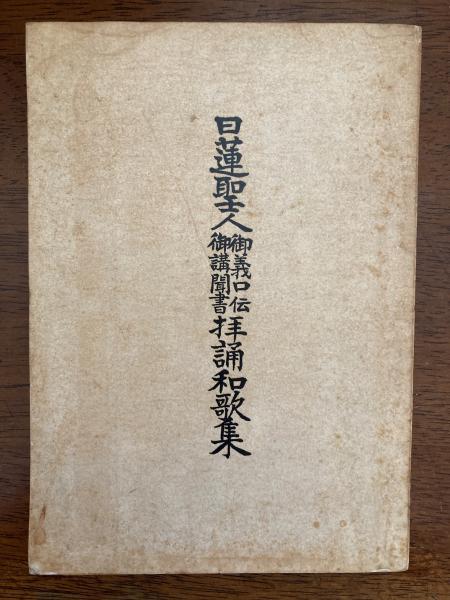 日蓮聖人
御義口伝
御講聞書
拝誦和歌集